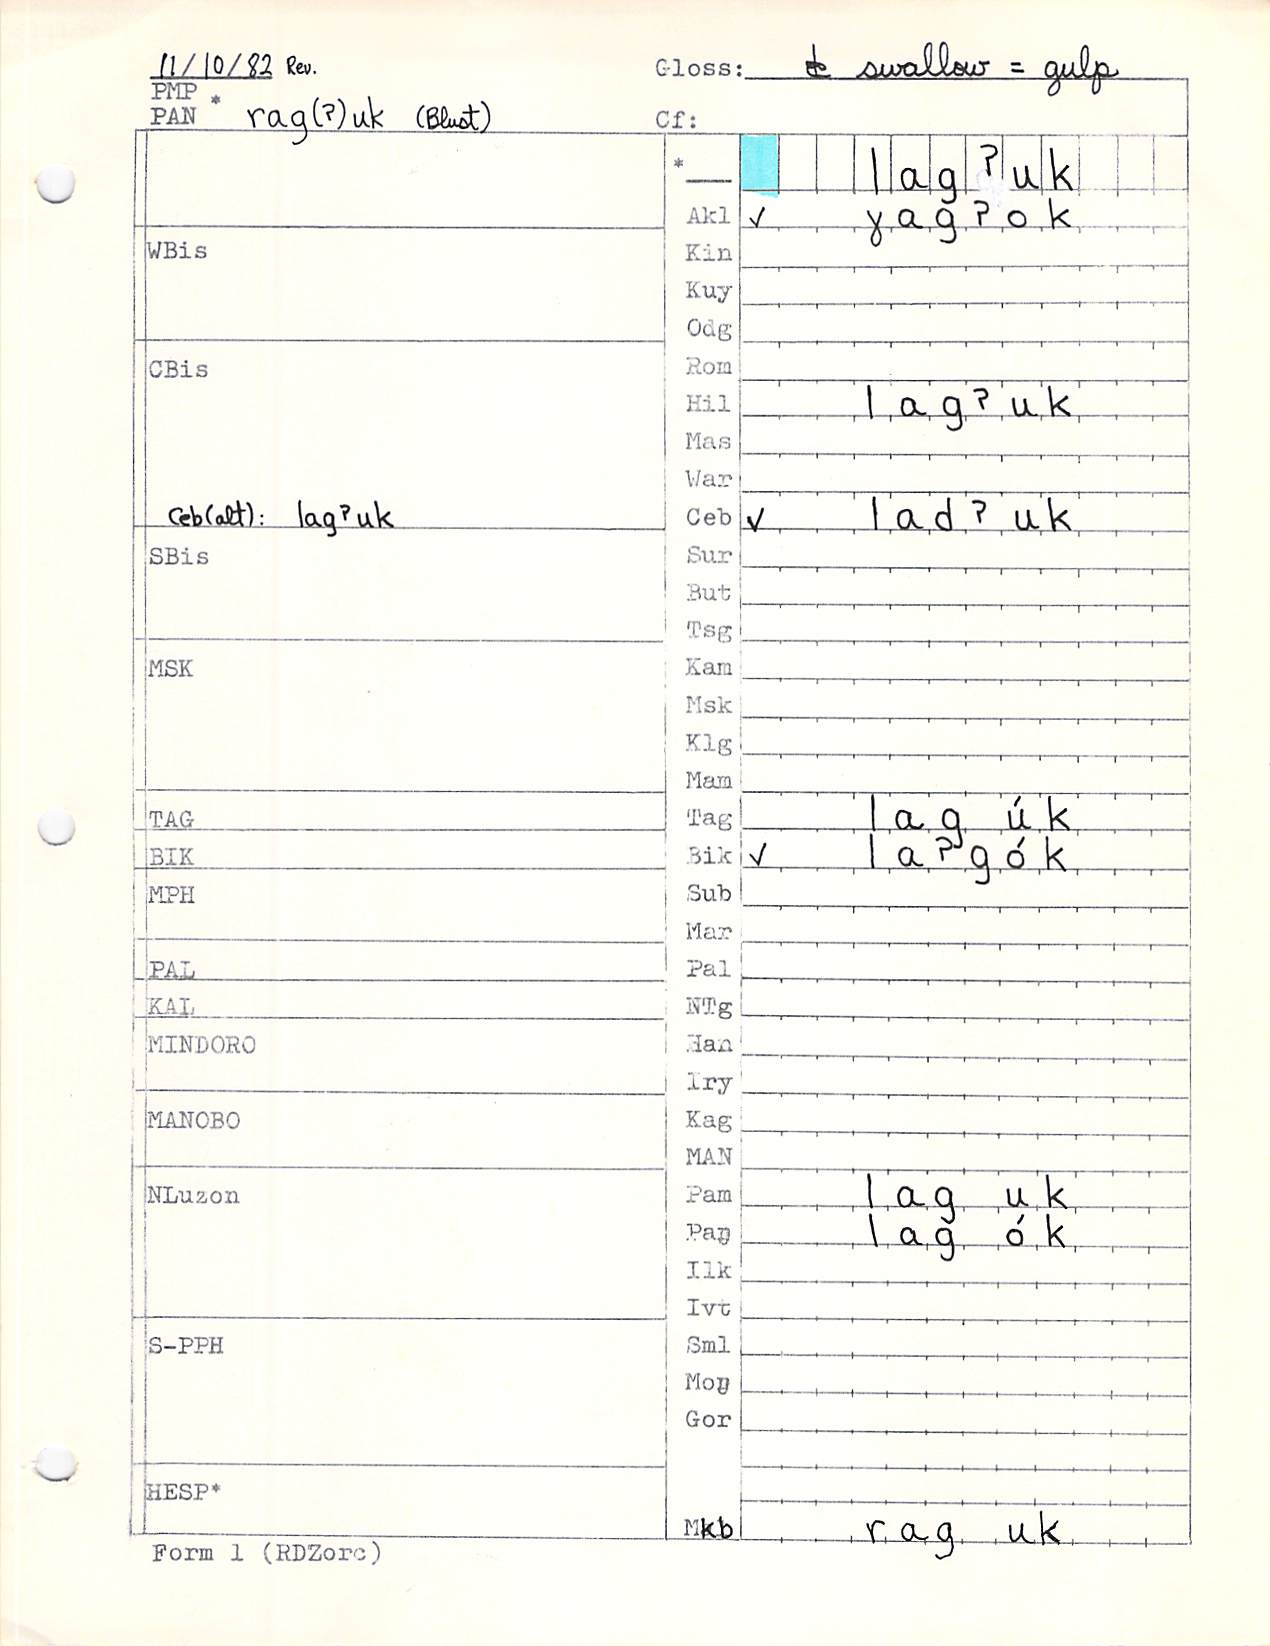 11/10/82 Rev.
Gloss: to swallow = gulp
PMP
PAN * rag(ʔ)uk (Blust)
Cf:
* lagʔuk
Akl ✓ ɣagʔok
WBis
Kin
Kuy
Odg
CBis
Rom
Hil lagʔuk
Mas
War
Ceb(alt): lagʔuk
Ceb ✓ ladʔuk
SBis
Sur
But
Tsg
MSK
Kam
Msk
Klg
Mam
TAG
Tag lag úk
BIK
Bik ✓ laʔgók
MPH
Sub
Mar
PAL
Pal
KAL
NTg
MINDORO
Han
Iry
MANOBO
Kag
MAN
NLuzon
Pam lag uk
Paŋ lag ók
Ilk
Ivt
S-PPH
Sml
Moŋ
Gor
HESP*
Mkb rag uk
Form 1 (RDZorc)